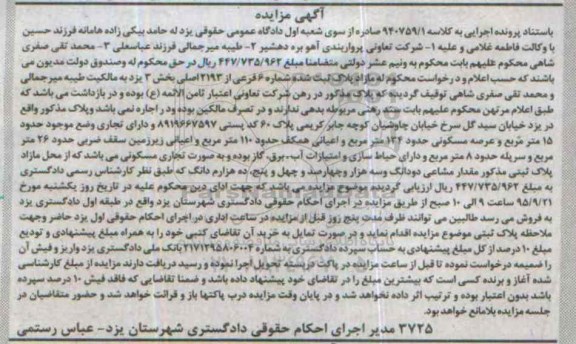 آگهی مزایده
باستناد پرونده اجرایی به کلاسه ۹۴۰۷۵۹/۱ صادره از سوی شعبه اول دادگاه عمومی حقوقی یزد له حامد بیکی زاده هامانه فرزند حسین
با وکالت فاطمه غلامی و علیه ۱- شرکت تعاونی پرواربندی آهو بره دهشیر ۲- طیبه میرجمالی فرزند عباسعلی ۳- محمد تقی صفری
شاهی محکوم علیهم بابت محکوم به ونیم عشر دولتی متضامنا مبلغ ۴۴۷/۷۳۵/۹۶۲ ریال در حق محکوم له وصندوق دولت مدیون می
باشند که حسب اعلام و درخواست محکوم له مازاد پلاک ثبت شده شماره ۶ فرعی از ۲۱۹۳ اصلی بخش ۳ یزد به مالکیت طیبه میرجمالی
و محمد تقی صفری شاهی توقیف گردیده که پلاک مذکور در رهن شرکت تعاونی اعتبار ثامن الائمه (ع) بوده و در بازداشت می باشد که
طبق اعلام مرتهن محکوم علیهم بابت سند رهنی مربوطه بدهی ندارند و در تصرف مالکین بوده ودر اجاره نمی باشد وپلاک مذکور واقع
در یزد خیابان سید گل سرخ خیابان چاوشیان کوچه جابر کریمی پلاک ۶۰ کد پستی ۸۹۱۹۶۶۷۵۹۷ و دارای تجاری وضع موجود حدود
۱۵ متر مربع و عرصه مسکونی حدود متر مربع و اعیانی همکف حدود ۱۱۰ متر مربع و اعیانی زیرزمین سقف ضربی حدود ۲۶ متر
مربع و سرپله حدود ۸ متر مربع و دارای حیاط سازی و امتیازات آب، برق، گاز بوده و به صورت تجاری مسکونی می باشد که از محل مازاد
پلاک ثبتی مذکور مقدار مشاعی دودانگ وسه هزار وچهارصد و چهل و پنج، ده هزارم دانگ که طبق نظر کارشناس رسمی دادگستری
به مبلغ ۴۴۷/۷۳۵/۹۶۲ ریال ارزیابی گردیده موضوع مزایده می باشد که جهت ادای دین محکوم علیه در تاریخ روز یکشنبه مورخ
۹۵/۹/۲۱ ساعت ۹ الی ۱۰ صبح از طریق مزایده در اجرای احکام حقوقی دادگستری شهرستان یزد واقع در طبقه اول دادگستری یزد
به فروش می رسد طالبین می توانند ظرف مدت پنج روز قبل از مزایده در ساعت اداری در اجرای احکام حقوقی اول یزد حاضر وجهت
ملاحظه پلاک ثبتی موضوع مزایده اقدام نماید و در صورت تمایل به خرید آن تقاضای کتبی خود را به همراه مبلغ پیشنهادی و تودیع
مبلغ ۱۰ درصد از کل مبلغ پیشنهادی به حساب سپرده دادگستری به شماره بانک ملی دادگستری یزد واریز و فیش آن
را ضمیمه درخواست نموده تا قبل از ساعت مزایده در پاکت دربسته تحویل اجرا نموده و رسید دریافت دارند مزایده از مبلغ کارشناسی
شده آغاز و برنده کسی است که بیشترین مبلغ را در تقاضای خود پیشنهاد داده باشد و ضمنا تقاضایی که فاقد فیش ۱۰ درصد سپرده
باشد بدون اعتبار بوده و ترتیب اثر داده نخواهد شد و در پایان وقت مزایده درب پاکتها باز و قرائت خواهد شد و حضور متقاضیان در
جلسه مزایده بلامانع خواهد بود.
۳۷۲۵ مدیر اجرای احکام حقوقی دادگستری شهرستان یزد- عباس رستمی